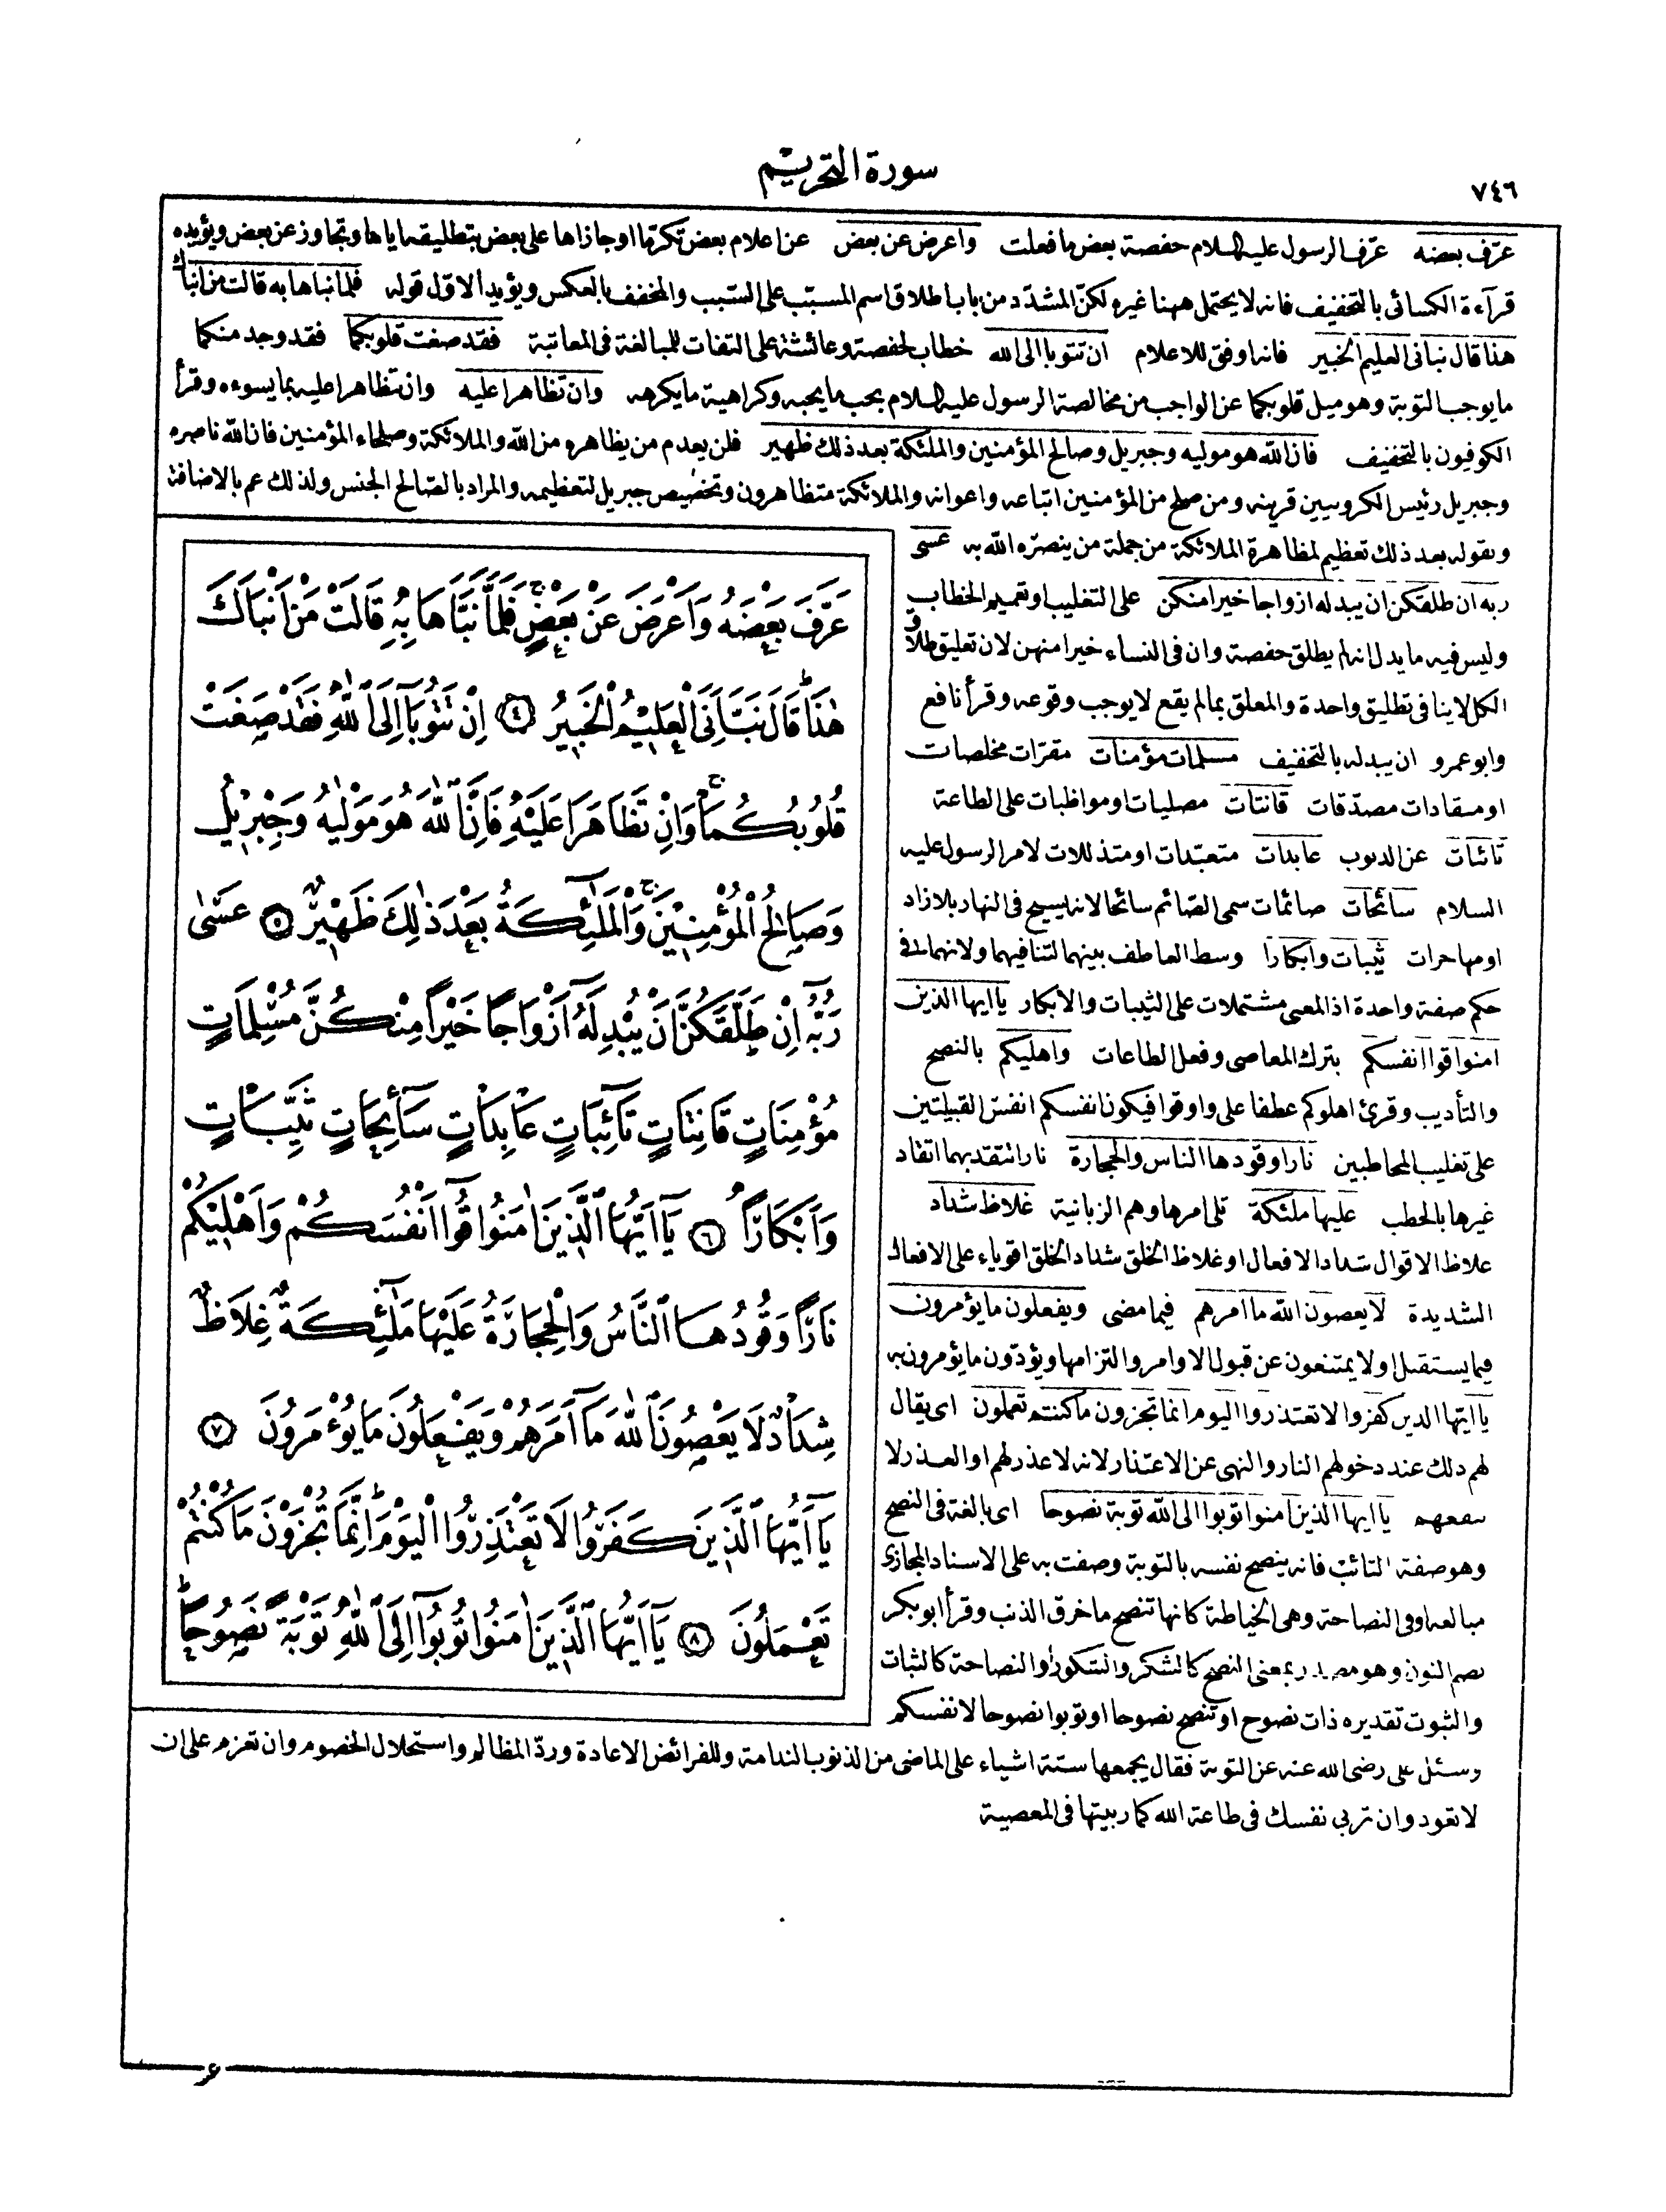 ٧٤٦
سورة التحريم
عرّف بعضه عرّف الرسول عليه السلام حفصة بعض ما فعلت واعرض عن بعض عن اعلام بعض تكرّما او جازاها على بعض بتطليقه اياها وتجاوز عن بعض ويؤيده
قرآءة الكسائى بالتخفيف فانه لا يحتمل ههنا غيره لكنّ المشدّد من باب اطلاق اسم المسبّب على السّبب والمخفف بالعكس ويؤيد الاوّل قوله فلما نبأها به قالت من انبأك
هذا قال نبأنى العليم الخبير فانه اوفق للاعلام ان تتوبا الى الله خطاب لحفصة وعائشة على التفات للمبالغة فى المعاتبة فقد صغت قلوبكما فقد وجد منكما
ما يوجب التوبة وهو ميل قلوبكما عن الواجب من مخالصة الرسول عليه السلام بحب ما يحبه وكراهية ما يكرهه وان تظاهرا عليه وان تظاهرا عليه بما يسوءه وقرأ
الكوفيون بالتخفيف فان الله هو موليه وجبريل وصالح المؤمنين والملئكة بعد ذلك ظهير فلن يعدم من يظاهره من الله والملائكة وصلحاء المؤمنين فان الله ناصره
وجبريل رئيس الكروبيين قرينه ومن صلح من المؤمنين اتباعه واعوانه والملائكة متظاهرون وتخصيص جبريل لتعظيمه والمراد بالصّالح الجنس ولذلك عم بالاضافة
وبقوله بعد ذلك تعظيم لمظاهرة الملائكة من جملة من ينصرّه الله به عسى
ربه ان طلقكن ان يبدله ازواجا خيرا منكن على التغليب او تعميم الخطاب
وليس فيه ما يدل انه لم يطلق حفصة وان فى النساء خيرا منهن لان تعليق طلاق
الكل لا ينافى تطليق واحدة والمعلق بما لم يقع لا يوجب وقوعه وقرأ نافع
وابو عمرو ان يبدله بالتخفيف مسلمات مؤمنات مقرّات مخلصات
او منقادات مصدّقات قانتات مصليات او مواظبات على الطاعة
تائبات عن الذنوب عابدات متعبّدات او متذللات لامر الرسول عليه
السلام سائحات صائمات سمى الصّائم سائحا لانه يسيح فى النهار بلا زاد
او مهاجرات ثيّبات وابكارا وسط العاطف بينهما لتنافيهما ولانهما فى
حكم صفة واحدة اذ المعنى مشتملات على الثيبات والابكار يا ايها الذين
امنوا قوا انفسكم بترك المعاصى وفعل الطاعات واهليكم بالنصح
والتأديب وقرئ اهلوكم عطفا على واو قوا فيكون انفسكم انفس القبيلتين
على تغليب المخاطبين نارا وقودها الناس والحجارة نارا تتقد بهما اتقاد
غيرها بالحطب عليها ملئكة تلى امرها وهم الزبانية غلاظ شداد
غلاظ الاقوال شداد الافعال او غلاظ الخلق شداد الخلق اقوياء على الافعال
الشديدة لا يعصون الله ما امرهم فيما مضى ويفعلون ما يؤمرون
فيما يستقبل او لا يمتنعون عن قبول الاوامر والتزامها ويؤدّون ما يؤمرون به
يا ايّها الذين كفروا لا تعتذروا اليوم انما تجزون ما كنتم تعملون اى يقال
لهم ذلك عند دخولهم النار والنهى عن الاعتذار لانه لا عذر لهم او العذر لا
ينفعهم يا ايها الذين امنوا توبوا الى الله توبة نصوحا اى بالغة فى النصح
وهو صفة التائب فانه ينصح نفسه بالتوبة وصفت به على الاسناد المجازى
مبالغة او فى النصاحة وهى الخياطة كانها تنصح ما خرق الذنب وقرأ ابو بكر
بضم النون وهو مصدر بمعنى النصح كالشكر والشكور او النصاحة كالثبات
والثبوت تقديره ذات نصوح او تنصح نصوحا او توبوا نصوحا لانفسكم
وسئل على رضى الله عنه عن التوبة فقال يجمعها ستة اشياء على الماضى من الذنوب الندامة وللفرائض الاعادة وردّ المظالم واستحلال الخصوم وان تعزم على ان
لا تعود وان تربى نفسك فى طاعة الله كما ربيتها فى المعصية
عَرَّفَ بَعْضَهُ وَاَعْرَضَ عَنْ بَعْضٍ فَلَمَّا نَبَّاَهَا بِهٖ قَالَتْ مَنْ اَنْبَاَكَ
هٰذَا قَالَ نَبَّاَنِىَ الْعَلِيْمُ الْخَبِيرُ ﴿٤﴾ اِنْ تَتُوبَا اِلَى اللّٰهِ فَقَدْ صَغَتْ
قُلُوبُكُمَا وَاِنْ تَظَاهَرَا عَلَيْهِ فَاِنَّ اللّٰهَ هُوَ مَوْلٰيهُ وَجِبْرِيلُ
وَصَالِحُ الْمُؤْمِنِيْنَ وَالْمَلٰٓئِكَةُ بَعْدَ ذٰلِكَ ظَهِيْرٌ ﴿٥﴾ عَسٰى
رَبُّهُٓ اِنْ طَلَّقَكُنَّ اَنْ يُبْدِلَهُٓ اَزْوَاجًا خَيْرًا مِنْكُنَّ مُسْلِمَاتٍ
مُؤْمِنَاتٍ قَانِتَاتٍ تَآئِبَاتٍ عَابِدَاتٍ سَآئِحَاتٍ ثَيِّبَاتٍ
وَاَبْكَارًا ﴿٦﴾ يَٓا اَيُّهَا الَّذِينَ اٰمَنُوا قُٓوا اَنْفُسَكُمْ وَاَهْلِيْكُمْ
نَارًا وَقُودُهَا النَّاسُ وَالْحِجَارَةُ عَلَيْهَا مَلٰٓئِكَةٌ غِلَاظٌ
شِدَادٌ لَا يَعْصُونَ اللّٰهَ مَٓا اَمَرَهُمْ وَيَفْعَلُونَ مَا يُؤْمَرُونَ ﴿٧﴾
يَٓا اَيُّهَا الَّذِينَ كَفَرُوا لَا تَعْتَذِرُوا الْيَوْمَ اِنَّمَا تُجْزَوْنَ مَا كُنْتُمْ
تَعْمَلُونَ ﴿٨﴾ يَٓا اَيُّهَا الَّذِينَ اٰمَنُوا تُوبُٓوا اِلَى اللّٰهِ تَوْبَةً نَصُوحًا